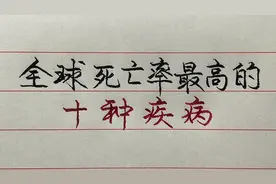 全球死亡率最高的
十种疾病